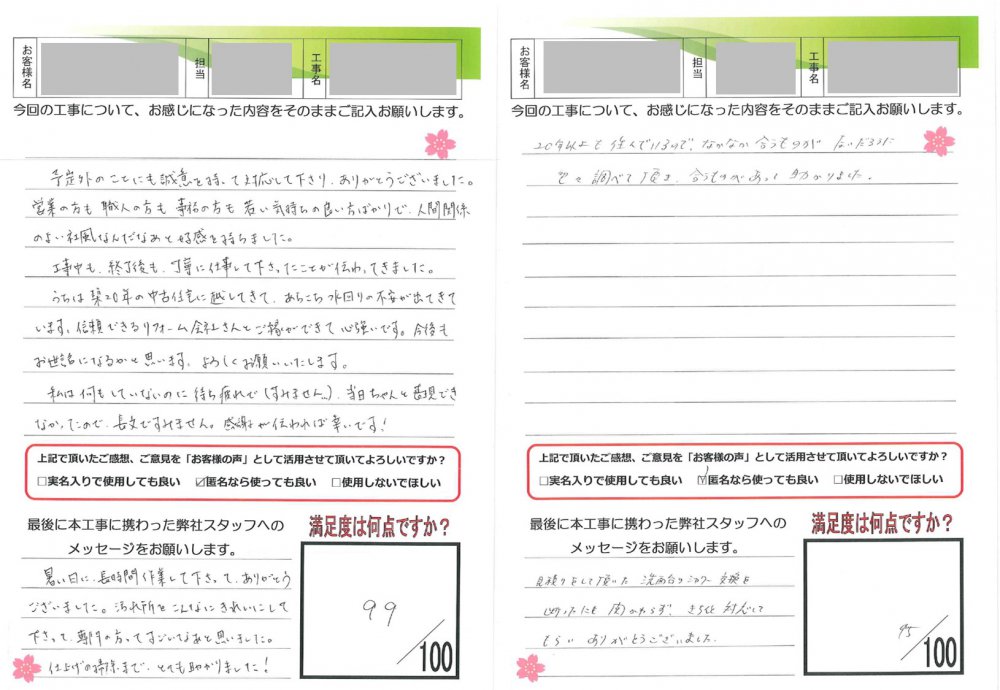 お客様名
担当
工事名
今回の工事について、お感じになった内容をそのままご記入お願いします。
予定外のことにも誠意を持って対応して下さり、ありがとうございました。
営業の方も 職人の方も 事務の方も 若い気持ちの良い方ばかりで、人間関係
のよい社風なんだなあと好感を持ちました。
工事中も、終了後も、丁寧に仕事して下さったことが伝わってきました。
うちは築20年の中古住宅に越してきて、あちこち水回りの不安が出てきて
います。信頼できるリフォーム会社さんとご縁ができて心強いです。今後も
お世話になるかと思います。よろしくお願いいたします。
私は何もしていないのに待ち疲れで(すみません..)、当日ちゃんと表現でき
なかったので、長文ですみません。感謝が伝われば幸いです!
上記で頂いたご感想、ご意見を「お客様の声」として活用させて頂いてよろしいですか?
□実名入りで使用しても良い ☑匿名なら使っても良い □使用しないでほしい
最後に本工事に携わった弊社スタッフへの
メッセージをお願いします。
暑い日に、長時間作業して下さって、ありがとう
ございました。汚れ所をこんなにきれいにして
下さって、専門の方ってすごいなあと思いました。
仕上げの掃除まで、とても助かりました!
満足度は何点ですか?
99
/100
お客様名
担当
工事名
今回の工事について、お感じになった内容をそのままご記入お願いします。
20年以上も住んでいるので、なかなか合うものが ないだろうに
色々調べて頂き、合うものがあって助かりました。
上記で頂いたご感想、ご意見を「お客様の声」として活用させて頂いてよろしいですか?
□実名入りで使用しても良い ☑匿名なら使っても良い □使用しないでほしい
最後に本工事に携わった弊社スタッフへの
メッセージをお願いします。
見積りをして頂いた 洗面台のミラー 交換を
にも関わらず、きちんと対応して
もらい ありがとうございました。
満足度は何点ですか?
95
/100